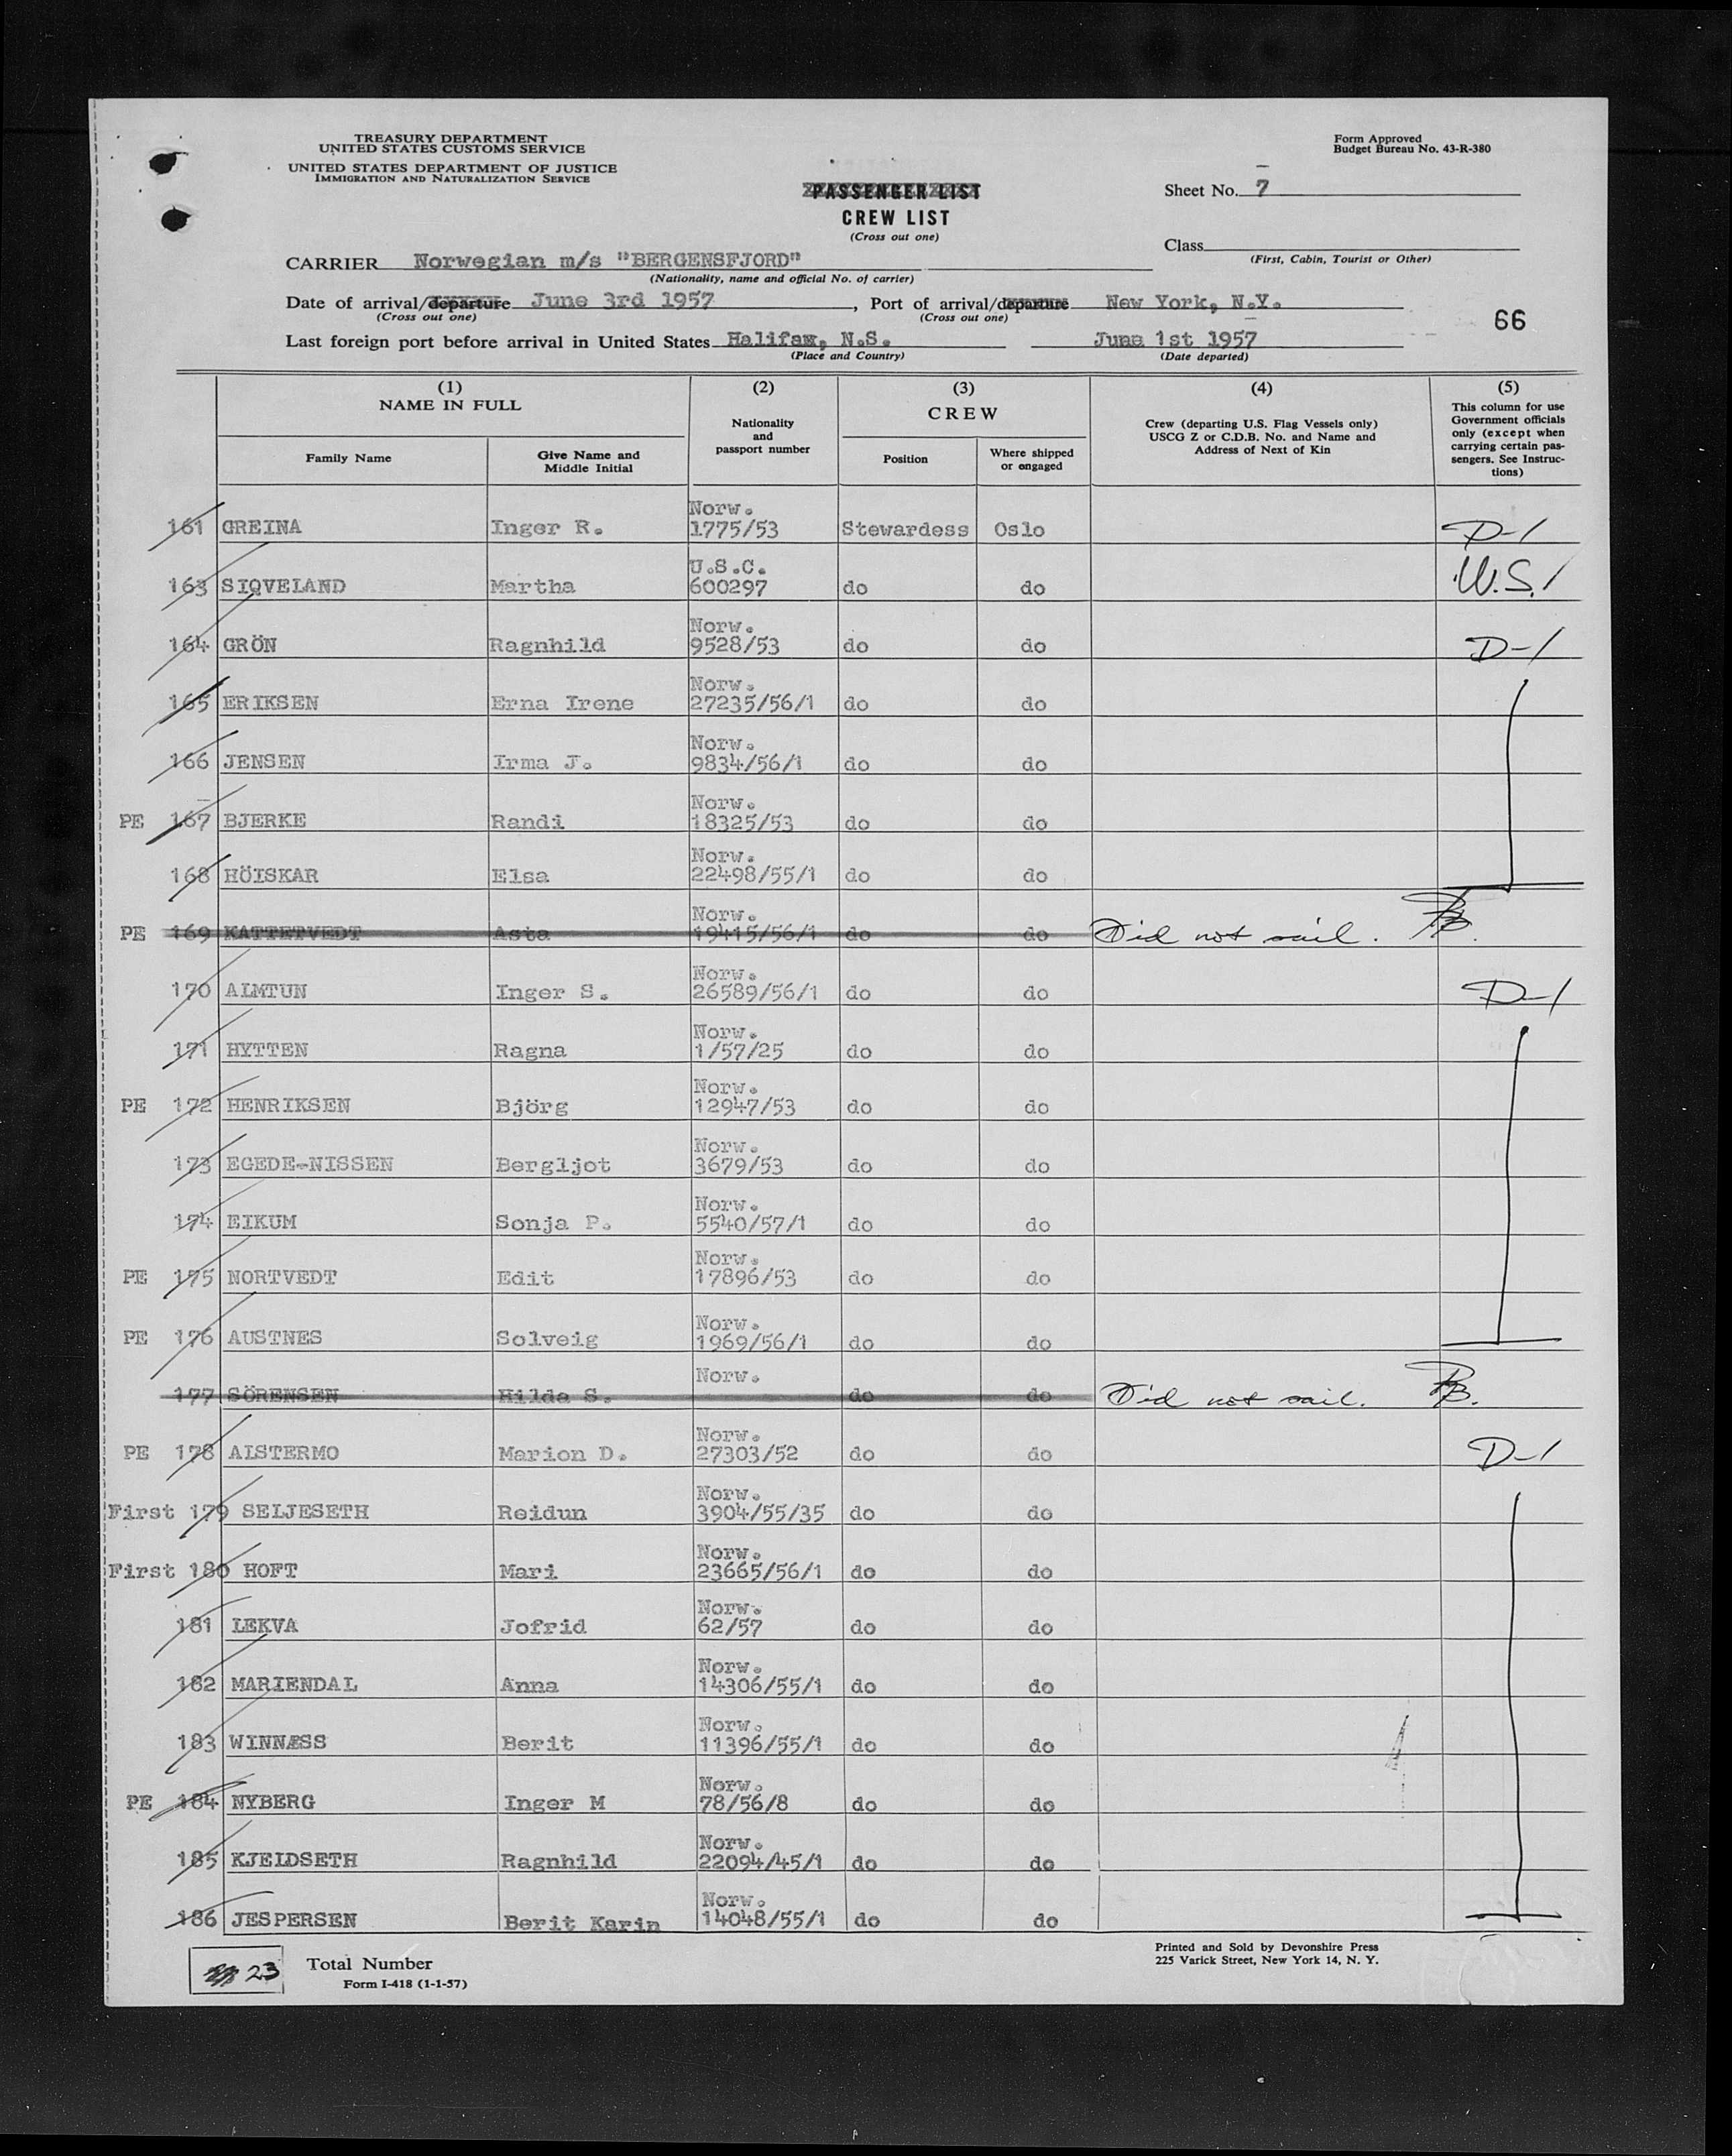 TREASURY DEPARTMENT
UNITED STATES CUSTOMS SERVICE
UNITED STATES DEPARTMENT OF JUSTICE
IMMIGRATION AND NATURALIZATION SERVICE
Form Approved
Budget Bureau No. 43-R-380
PASSENGER LIST
CREW LIST
(Cross out one)
Sheet No. 7
Class
(First, Cabin, Tourist or Other)
CARRIER Norwegian m/s "BERGENSFJORD"
(Nationality, name and official No. of carrier)
Date of arrival/departure June 3rd 1957, Port of arrival/departure New York, N.Y.
(Cross out one) (Cross out one)
66
Last foreign port before arrival in United States Halifax, N.S. June 1st 1957
(Place and Country) (Date departed)
(1) (2) (3) (4) (5)
NAME IN FULL
Family Name
Give Name and Middle Initial
Nationality and passport number
CREW
Position
Where shipped or engaged
Crew (departing U.S. Flag Vessels only)
USCG Z or C.D.B. No. and Name and
Address of Next of Kin
This column for use
Government officials
only (except when
carrying certain pas-
sengers. See Instruc-
tions)
Norw.
161 GREINA Inger R. 1775/53 Stewardess Oslo D-1
U.S.C.
163 SIQVELAND Martha 600297 do do W.S.
Norw.
164 GRÖN Ragnhild 9528/53 do do D-1
Norw.
165 ERIKSEN Erna Irene 27235/56/1 do do
Norw.
166 JENSEN Irma J. 9834/56/1 do do
Norw.
PE 167 BJERKE Randi 18325/53 do do
Norw.
168 HÖISKAR Elsa 22498/55/1 do do
Norw.
PE 169 KATTETVEDT Asta 19415/56/1 do do Did not sail.
Norw.
170 ALMTUN Inger S. 26589/56/1 do do D-1
Norw.
171 HYTTEN Ragna 1/57/25 do do
Norw.
PE 172 HENRIKSEN Björg 12947/53 do do
Norw.
173 EGEDE-NISSEN Bergljot 3679/53 do do
Norw.
174 EIKUM Sonja P. 5540/57/1 do do
Norw.
PE 175 NORTVEDT Edit 17896/53 do do
Norw.
PE 176 AUSTNES Solveig 1969/56/1 do do
Norw.
177 SÖRENSEN Hilda S. do do Did not sail.
Norw.
PE 178 ALSTERMO Marion D. 27303/52 do do D-1
Norw.
First 179 SELJESETH Reidun 3904/55/35 do do
Norw.
First 180 HOFT Mari 23665/56/1 do do
Norw.
181 LEKVA Jofrid 62/57 do do
Norw.
182 MARIENDAL Anna 14306/55/1 do do
Norw.
183 WINNÆSS Berit 11396/55/1 do do
Norw.
PE 184 NYBERG Inger M 78/56/8 do do
Norw.
185 KJELDSETH Ragnhild 22094/45/1 do do
Norw.
186 JESPERSEN Berit Karin 14048/55/1 do do
23 Total Number
Form I-418 (1-1-57)
Printed and Sold by Devonshire Press
225 Varick Street, New York 14, N. Y.